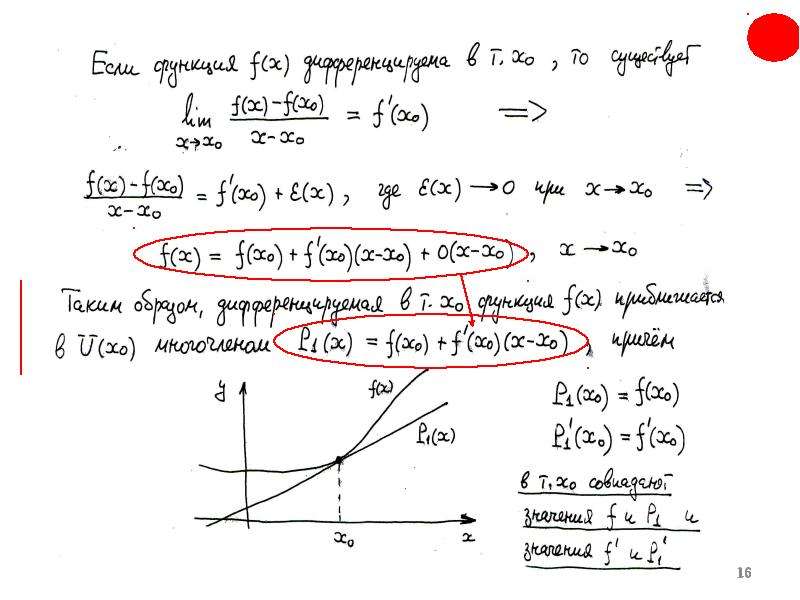 Если функция f(x) дифференцируема в т. x₀, то существует
lim x→x₀ (f(x)-f(x₀))/(x-x₀) = f'(x₀) ⇒
(f(x)-f(x₀))/(x-x₀) = f'(x₀) + ε(x), где ε(x) → 0 при x → x₀ ⇒
f(x) = f(x₀) + f'(x₀)(x-x₀) + o(x-x₀), x → x₀
Таким образом, дифференцируемая в т. x₀ функция f(x) приближается
в U(x₀) многочленом P₁(x) = f(x₀) + f'(x₀)(x-x₀), причём
y
f(x)
P₁(x)
x₀
x
P₁(x₀) = f(x₀)
P₁'(x₀) = f'(x₀)
в т. x₀ совпадают
значения f и P₁ и
значения f' и P₁'
16